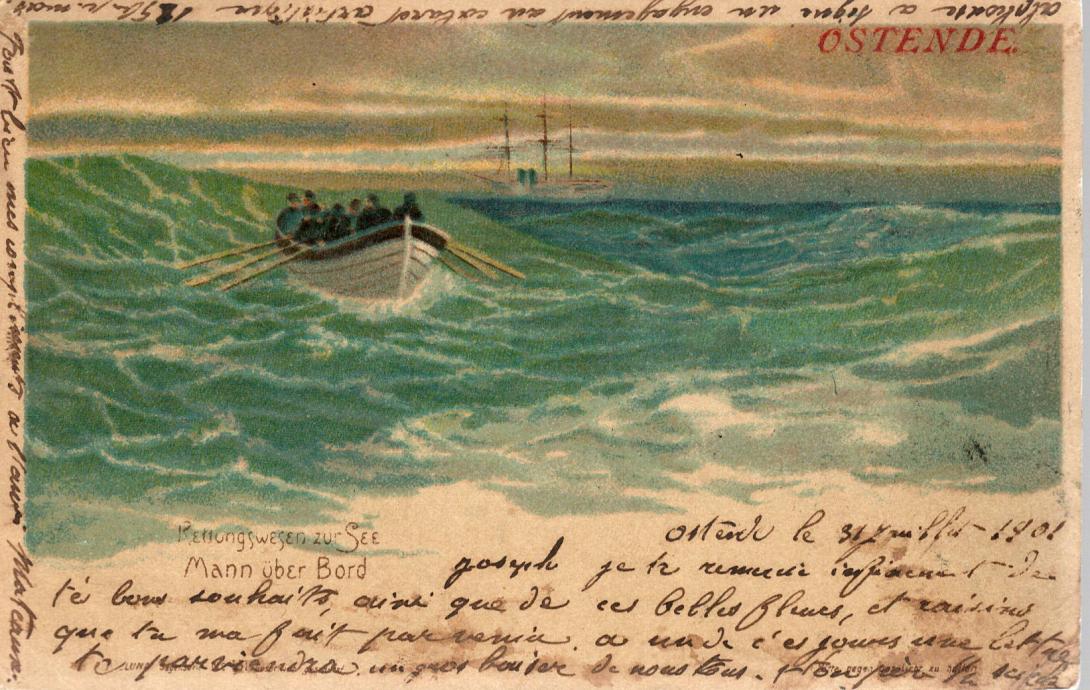 OSTENDE.
Rettungswesen zur See
Mann über Bord
ostende le 31 juillet 1901
joseph je te remercie infiniment de
té bons souhaits, ainsi que de ces belles fleurs, et raisins
que tu ma fait parvenir. a un de c'es jours une lettre
te parviendra un gros baiser de nous tous. ton père
bien mes compliments a
Mateaux.
alphonse a signé un engagement au cabaret artistique 125 fr. p. mois